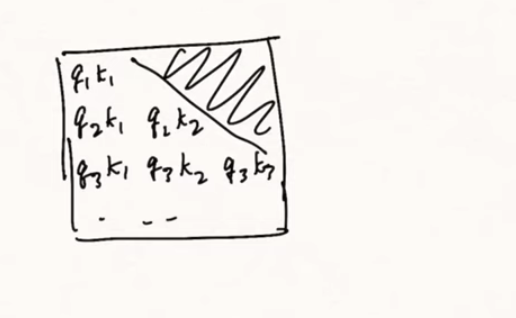 q₁k₁
q₂k₁ q₂k₂
q₃k₁ q₃k₂ q₃k₃
. _ _